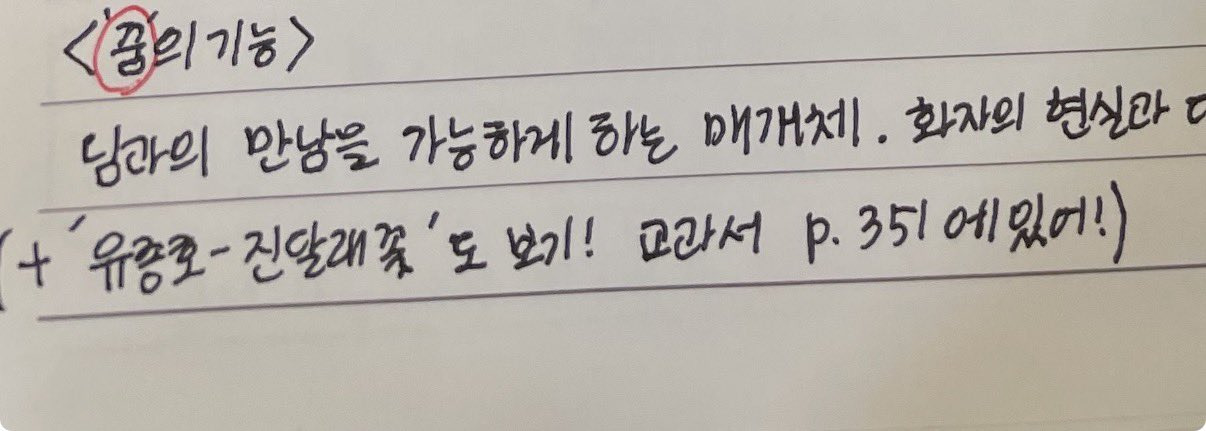 <'꿈'의 기능>
님과의 만남을 가능하게 하는 매개체. 화자의 현실과
(+ '유종호-진달래꽃'도 보기! 교과서 p. 351에 있어!)